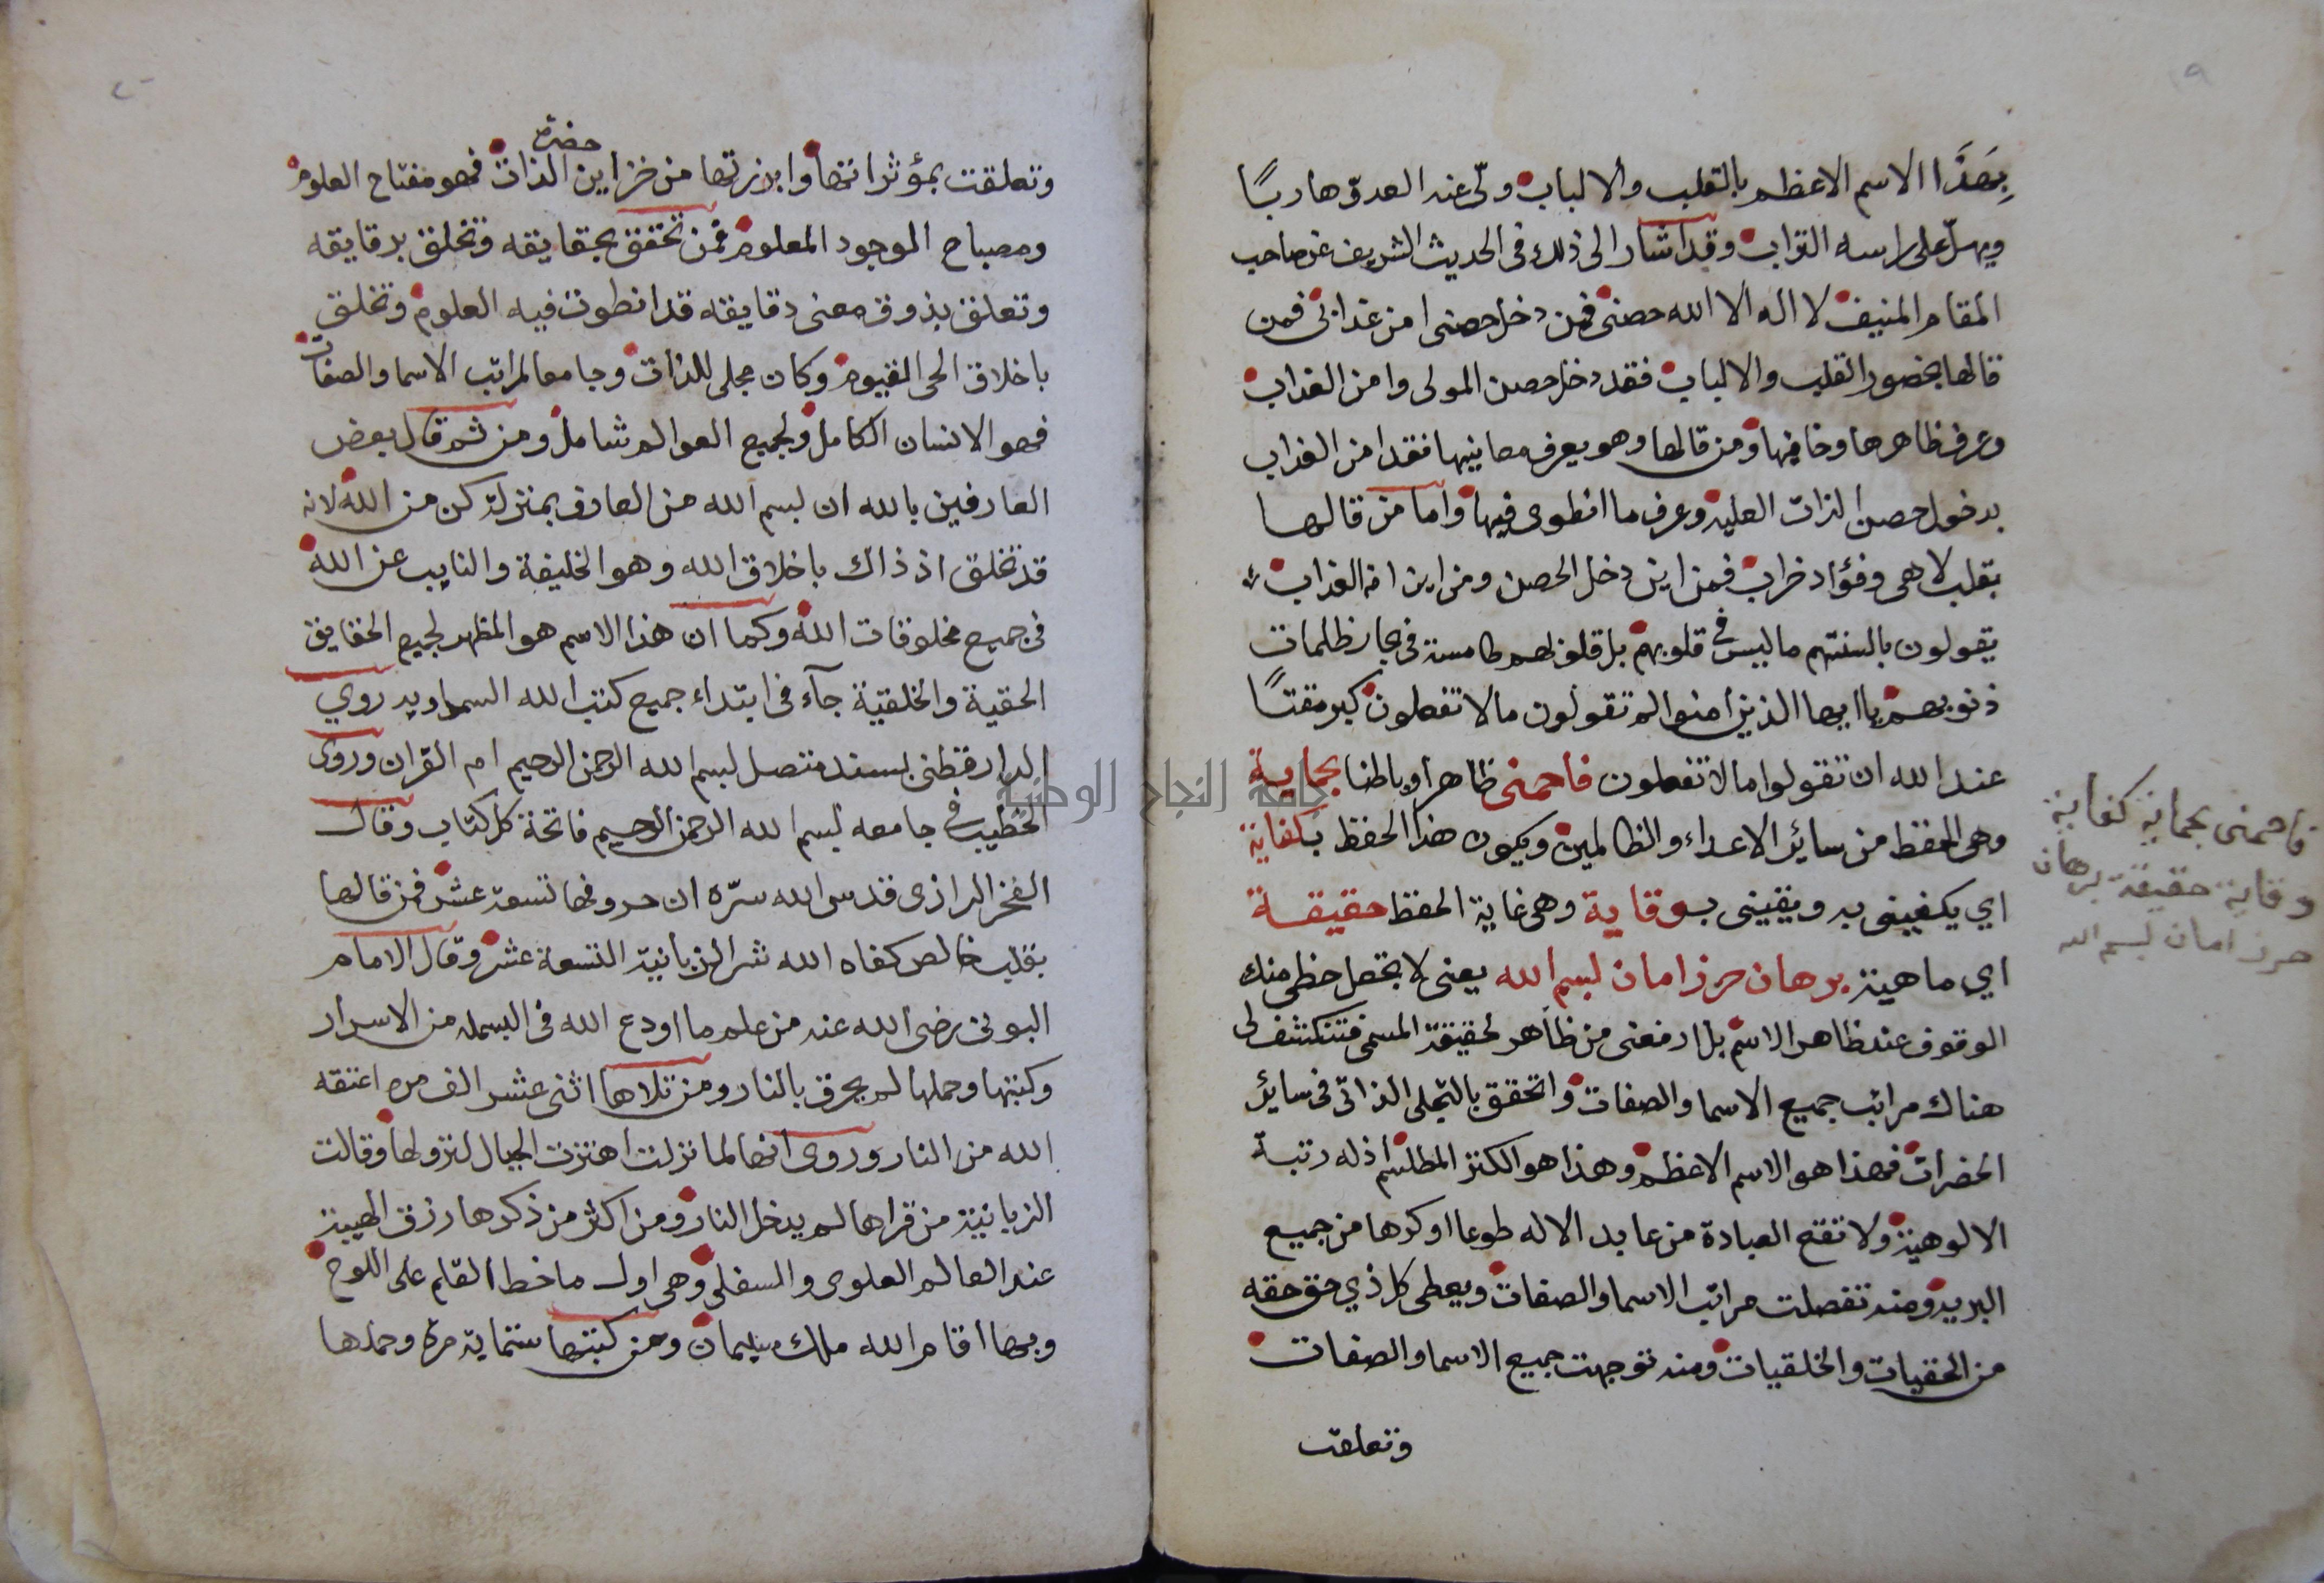 بِهَذَا الاسم الاعظم بالقلب والالباب ولّى عنه العدوّ هاربًا
ويهلّ على راسه التراب وقد اشار الى ذلك فى الحديث الشريف عن صاحب
المقام المنيف لا اله الا الله حصنى فمن دخل حصنى امن عذابى فمن
قالها بحضور القلب والالباب فقد دخل حصن المولى وامن العذاب
وعرف ظاهرها وخافيها ومن قالها وهو يعرف معانيها فقد امن العذاب
بدخول حصن الذات العليه وعرف ما انطوى فيها واما من قالها
بقلب لاهى وفؤاد خراب فمن اين دخل الحصن ومن اين امن العذاب
يقولون بالسنتهم ما ليس فى قلوبهم بل قلوبهم طامسة فى بحار ظلمات
ذنوبهم يا ايها الذين امنوا لم تقولون ما لا تفعلون كبر مقتًا
عند الله ان تقولوا ما لا تفعلون فاحمنى ظاهرا وباطنا بحماية
وهى الحفظ من ساير الاعداء والظالمين ويكون هذا الحفظ بكفاية
اي يكفينى به ويقينى بوقاية وهى غاية الحفظ حقيقة
اي ماهية برهان حرز امان بسم الله يعنى لا تجعل حظى منك
الوقوف عند ظاهر الاسم بل ارفعنى من ظاهر لحقيقة المسمى فتنكشف لى
هناك مراتب جميع الاسما والصفات واتحقق بالتجلى الذاتى فى ساير
الحضرات فهذا هو الاسم الاعظم وهذا هو الكنز المطلسم اذ له رتبة
الالوهية ولا تقع العبادة من عابد الا له طوعا او كرها من جميع
البريه ومنه تفصلت مراتب الاسما والصفات ويعطى كل ذي حق حقه
من الحقيات والخلقيات ومنه توجهت جميع الاسما والصفات
وتعلقت
فاحمنى بحماية كفاية
وقاية حقيقة برهان
حرز امان بسم الله
حضرة
وتعلقت بمؤثراتها وابرزتها من خزاين الذات فهو مفتاح العلوم
ومصباح الموجود المعلوم فمن تحقق بحقايقه وتخلق بدقايقه
وتعلق بذوق معنى دقايقه قد انطوت فيه العلوم وتخلق
باخلاق الحى القيوم وكان مجلى للذات وجامعا لمراتب الاسما والصفات
فهو الانسان الكامل ولجميع العوالم شامل ومن ثم قال بعض
العارفين بالله ان بسم الله من العارف بمنزلة كن من الله لانه
قد تخلق اذ ذاك باخلاق الله وهو الخليفة والنايب عن الله
فى جميع مخلوقات الله وكما ان هذا الاسم هو المظهر لجميع الحقايق
الحقية والخلقية جآء فى ابتداء جميع كتب الله السماويه روي
الدارقطنى بسند متصل بسم الله الرحمن الرحيم ام القران وروى
الخطيب فى جامعه بسم الله الرحمن الرحيم فاتحة كل كتاب وقال
الفخر الرازى قدس الله سرّه ان حروفها تسعة عشر فمن قالها
بقلب خالص كفاه الله شر الزبانية التسعة عشر وقال الامام
البونى رضى الله عنه من علم ما اودع الله فى البسمله من الاسرار
وكتبها وحملها لم يحرق بالنار ومن تلاها اثنى عشر الف مره اعتقه
الله من النار وروى انها لما نزلت اهتزت الجبال لنزولها وقالت
الزبانية من قراها لم يدخل النار ومن اكثر من ذكرها رزق الهيبة
عند العالم العلوى والسفلى وهى اول ما خط القلم على اللوح
وبها اقام الله ملك سليمان ومن كتبها ستماية مرة وحملها
جامعة النجاح الوطنية